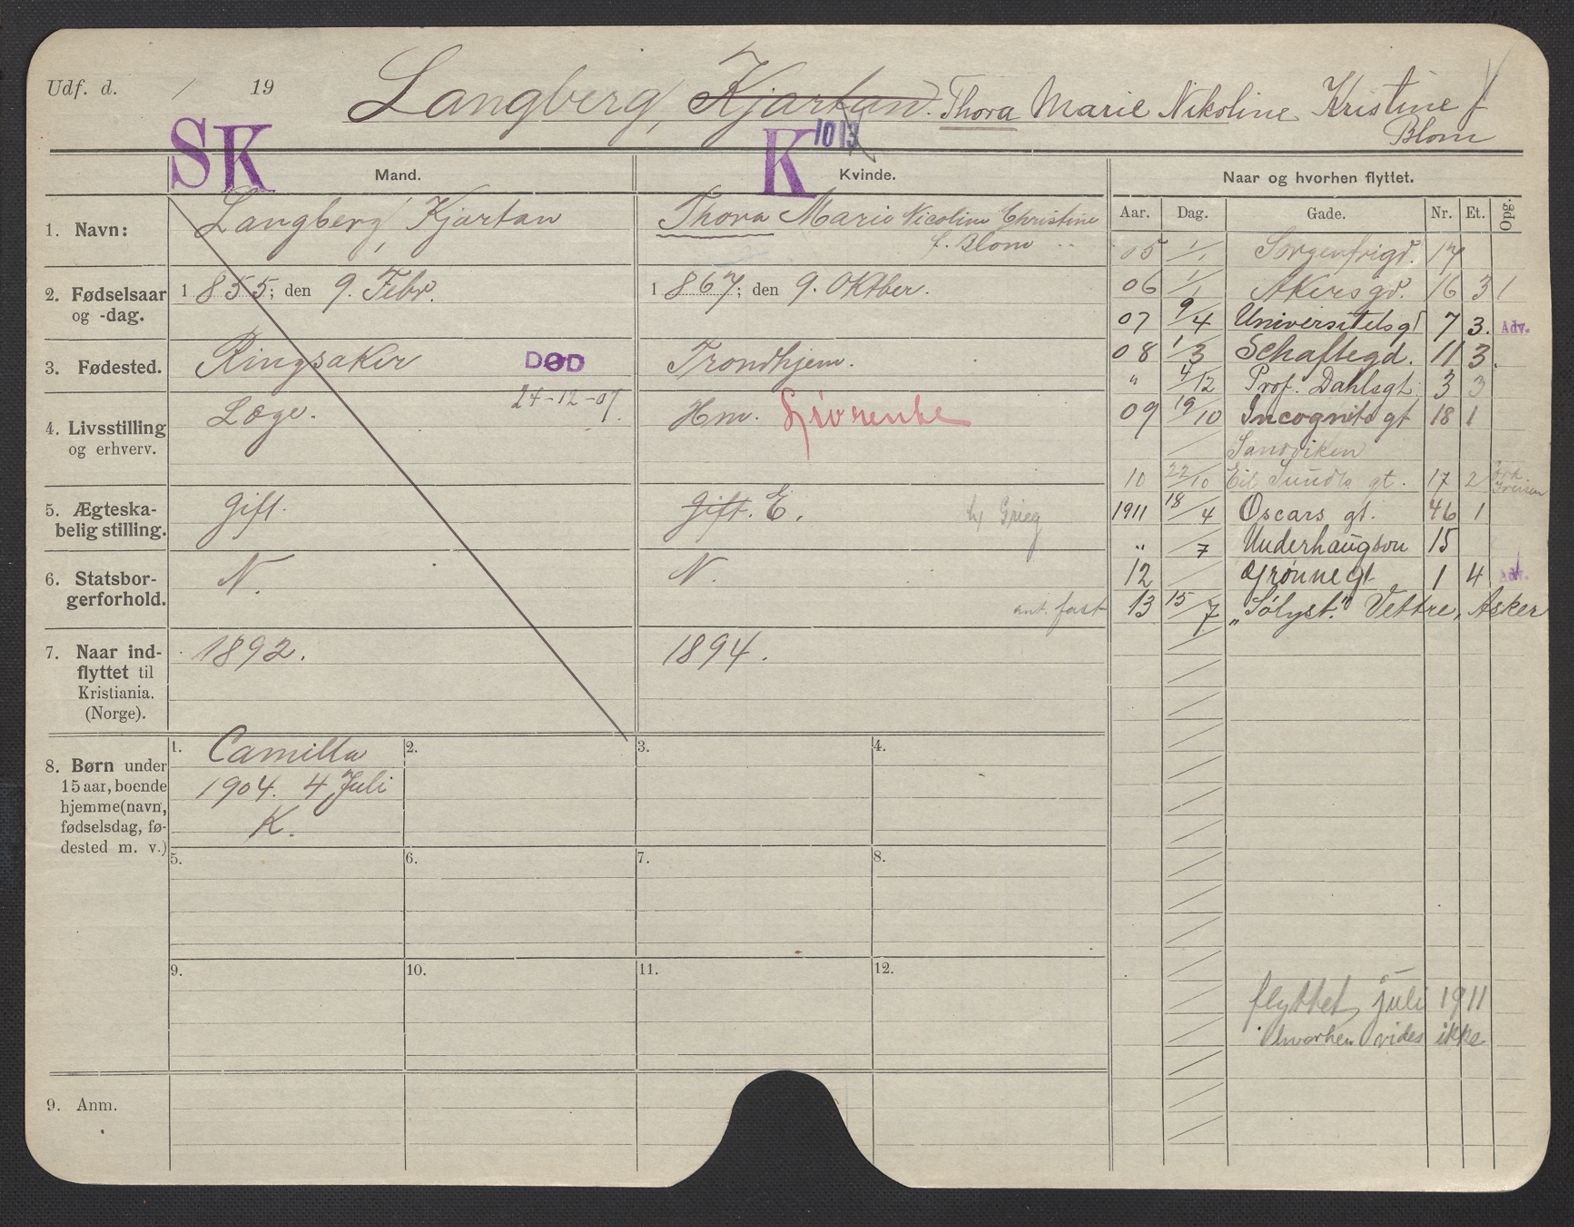 Udf. d. / 19 Langberg, Kjartan. Thora Marie Nikoline Kristine f
Blom
SK K 1013
Mand. Kvinde. Naar og hvorhen flyttet.
Aar. Dag. Gade. Nr. Et. Opg.
1. Navn: Langberg, Kjartan Thora Marie Nicoline Christine
f. Blom
2. Fødselsaar og -dag. 1855; den 9. Febr. 1867; den 9. Oktber.
3. Fødested. Ringsaker DØD Trondhjem.
24-12-07
4. Livsstilling og erhverv. Læge. Hm.
5. Ægteskabelig stilling. Gift. Gift. E. Grieg
6. Statsborgerforhold. N. N.
ant. fast
7. Naar indflyttet til Kristiania. (Norge). 1892. 1894.
8. Børn under 15 aar, boende hjemme (navn, fødselsdag, fødested m. v.)
1. Camilla
1904. 4 Juli
K.
2.
3.
4.
5.
6.
7.
8.
9.
10.
11.
12.
9. Anm.
05 1/1 Sorgenfrigd. 17
06 1/1 Akersgd. 16 3 1
07 9/4 Universitetsgt 7 3. Adv.
08 1/3 Schaftegd. 11 3.
" 4/12 Prof. Dahlsgt. 3 3
09 19/10 Incognito gt 18 1
Sandviken
10 22/10 Eil Sundts gt. 17 2
1911 18/4 Oscars gt. 46 1
" /7 Underhaugsvn 15
12 / Grønnegt 1 4 Adv.
13 15/7 "Sølyst." Vettre, Asker
flyttet juli 1911
hvorhen vides ikke